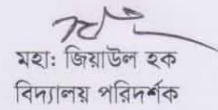 মহা: জিয়াউল হক
বিদ্যালয় পরিদর্শক